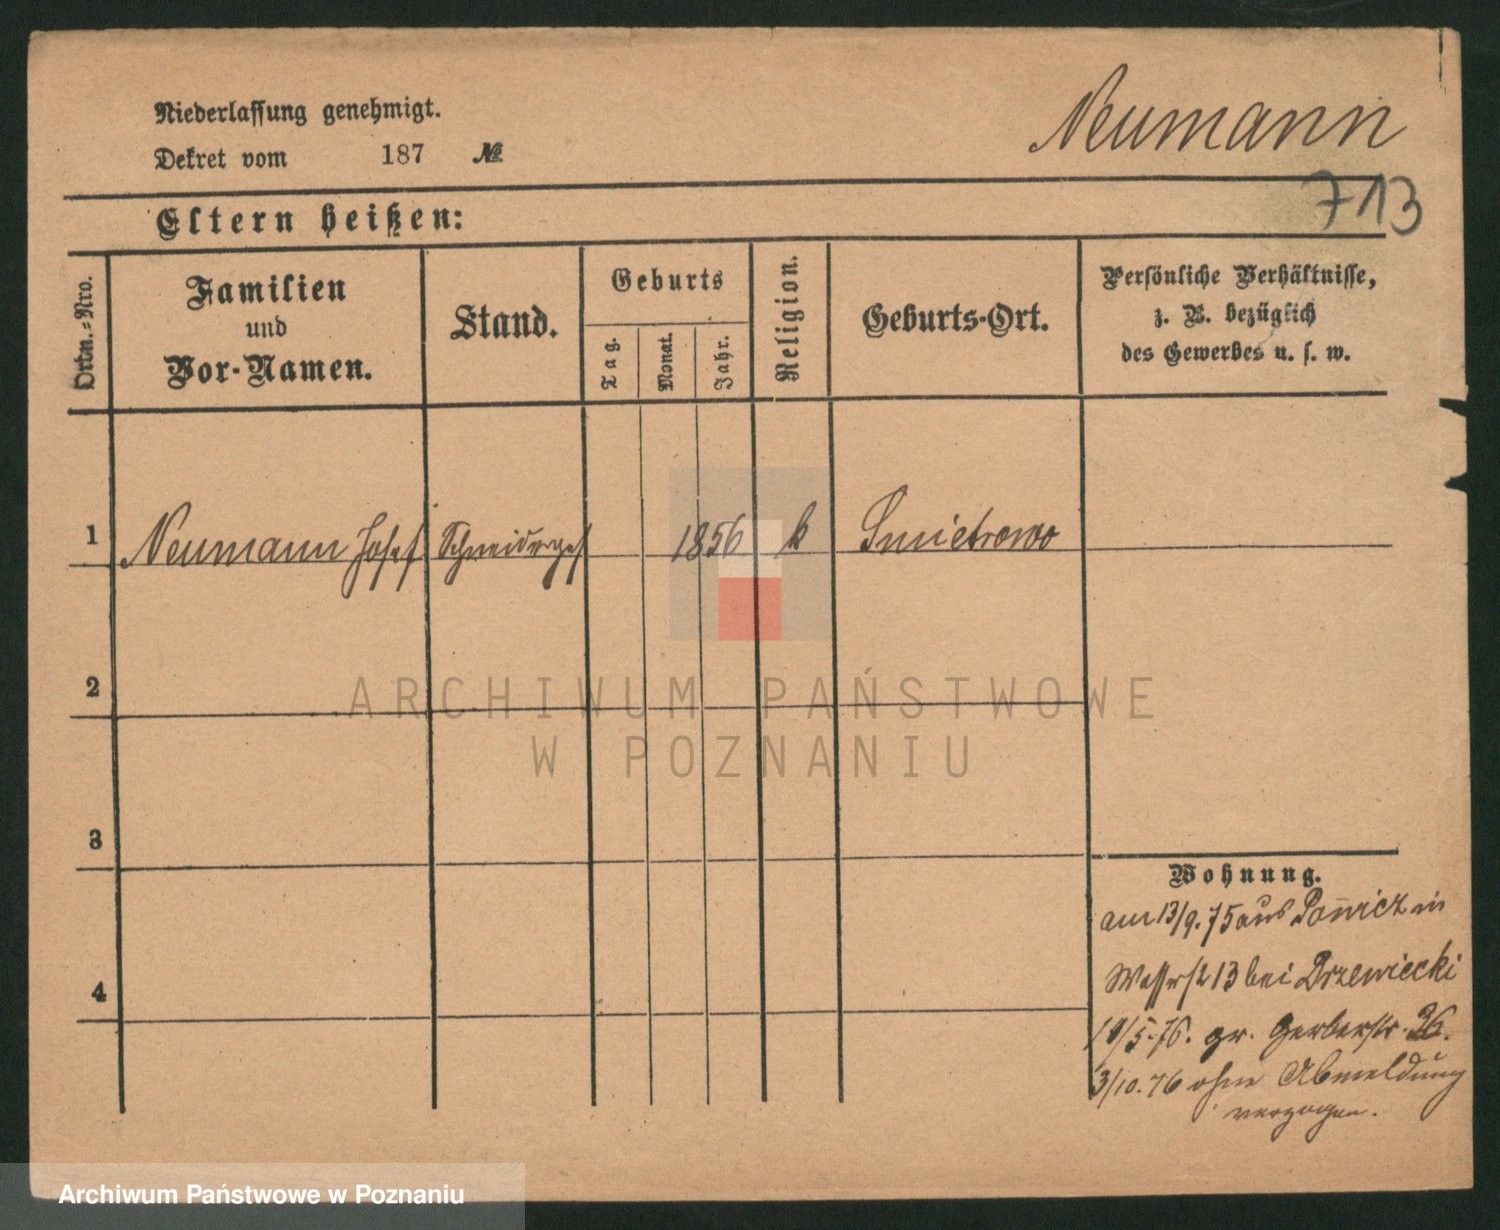 Niederlassung genehmigt.
Dekret vom 187 №
Neumann
713
Eltern heißen:
Ortn.-Nro.
Familien
und
Vor-Namen.
Stand.
Geburts
Tag.
Monat.
Jahr.
Religion.
Geburts-Ort.
Persönliche Verhältnisse,
z. B. bezüglich
des Gewerbes u. s. w.
1 Neumann Josef Schneiderges 1856 k Smietrowo
2
3
4
Wohnung.
am 13/9.75 aus in
Wasserstr 13 bei Drzewiecki
19/5.76. gr. Gerberstr. 36.
3/10.76 ohne Abmeldung
verzogen.
ARCHIWUM PAŃSTWOWE
W POZNANIU
Archiwum Państwowe w Poznaniu